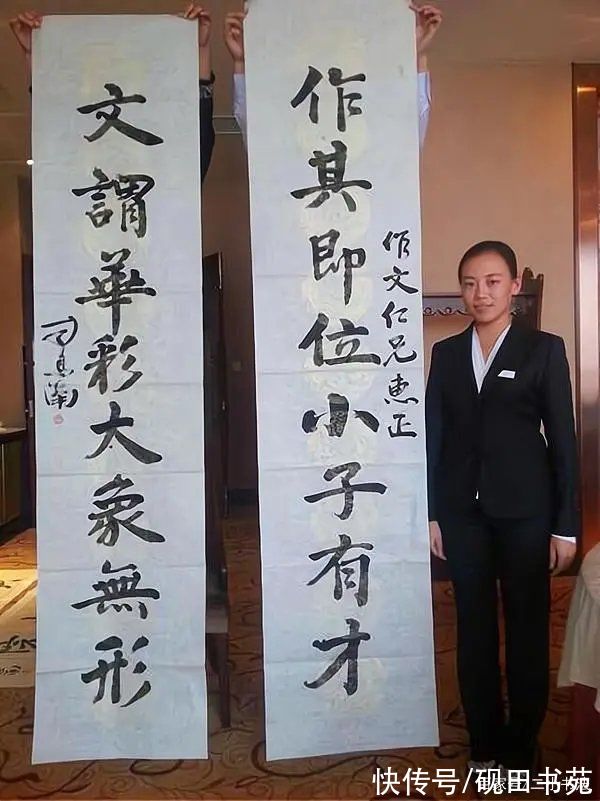 作其即位小子有才
作文仁兄惠正
文謂華彩太象無形
司馬南
快传号/砚田书苑